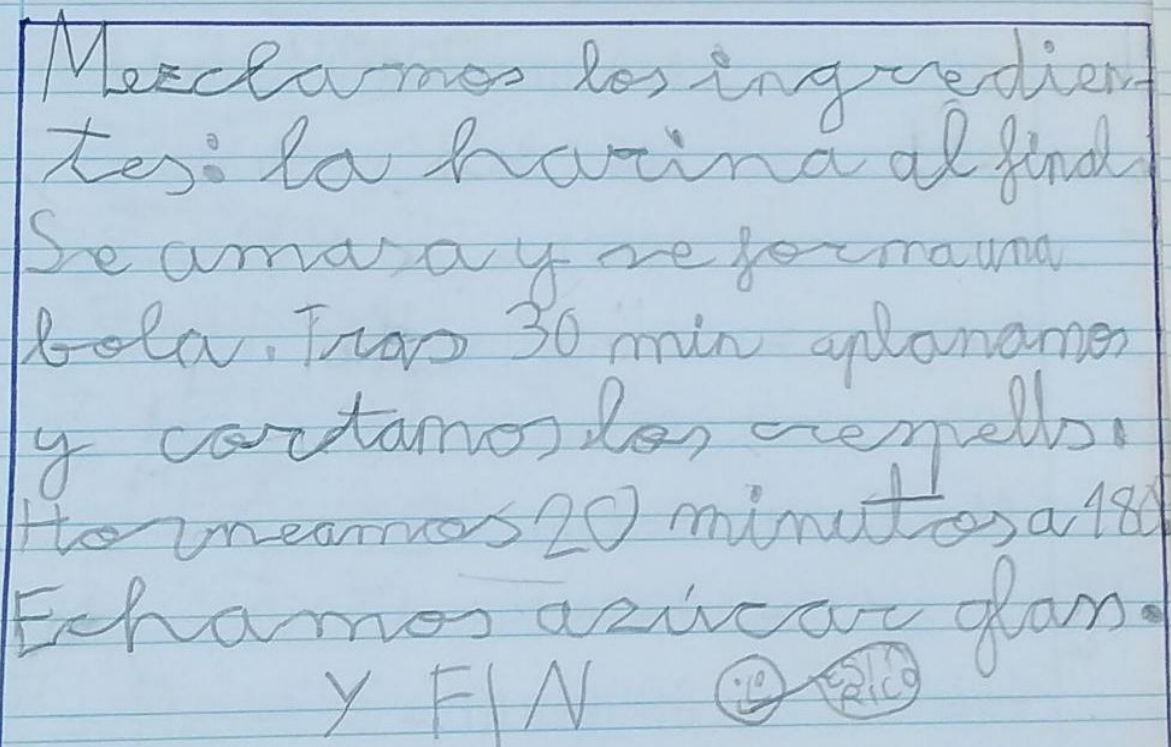 Mezclamos los ingredien-
tes: la harina al final
Se amasa y se forma una
bola. Tras 30 min aplanamos
y cortamos los crespells.
Horneamos 20 minutos a 180
Echamos azúcar glass.
Y FIN
RICO